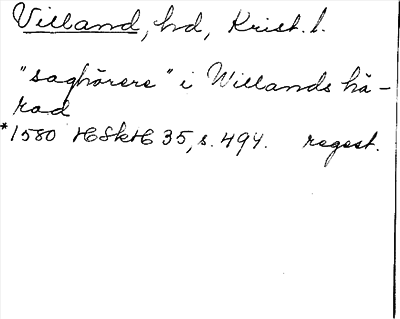 Villand, hd, Krist. l.
"saghörere" i Willands hä-
rad
*1580 HSkH 35, s. 494. regest.